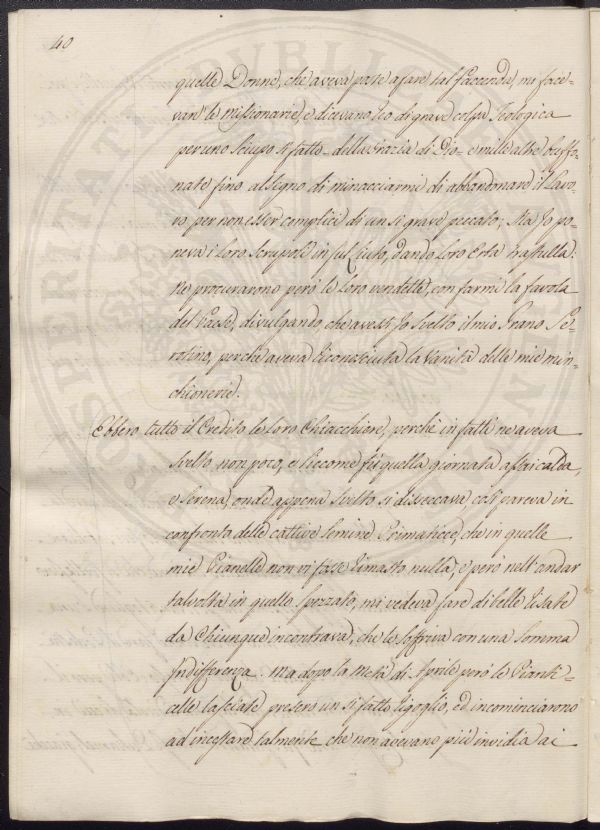 40
quelle Donne, che aveva prese a fare tal faccende, mi face-
van' le missionarie, e dicevano reo di grave colpa Teologica
per uno sciupo sì fatto della Grazia di Dio e mille altre buffo-
nate fino al segno di minacciarmi di abbandonare il Lavo-
ro per non esser complici di un sì grave peccato; Ma Jo po-
neva i loro scrupoli in sul Liuto, dando loro Erba trastulla:
ne procurarono però le loro vendette, con farmi la favola
del Paese, divulgando che avessi Jo svelto il mio Grano Se-
rotino, perchè aveva riconosciuta la vanità delle mie min-
chionerie.
Ebbero tutto il Credito le loro Chiacchiere, perchè in fatti ne aveva
svelto non poco, e siccome fù quella giornata assai calda,
e serena, onde appena svelto si disseccava, così pareva in
confronto delle cattive semine Primaticce, che in quelle
mie Pianelle non vi fosse rimasto nulla, e però nell'andar
talvolta in quello spezzato, mi vedeva fare di belle risate
da Chiunque incontrava, che le soffriva con una somma
Jndifferenza. Ma dopo la metà di Aprile però le Pianti-
celle lasciate presero un sì fatto rigoglio, ed incominciarono
ad incestare talmente che non avevano più invidia ai